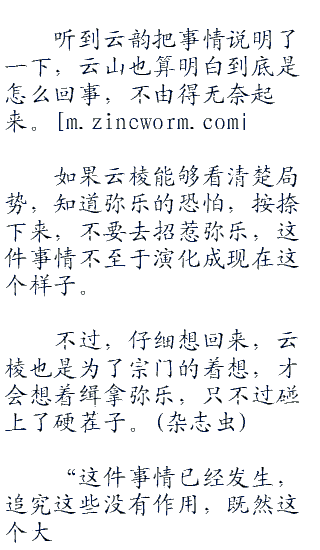 听到云韵把事情说明了
一下，云山也算明白到底是
怎么回事，不由得无奈起
来。[m.zincworm.com|
如果云棱能够看清楚局
势，知道弥乐的恐怕，按捺
下来，不要去招惹弥乐，这
件事情不至于演化成现在这
个样子。
不过，仔细想回来，云
棱也是为了宗门的着想，才
会想着缉拿弥乐，只不过碰
上了硬茬子。(杂志虫)
“这件事情已经发生，
追究这些没有作用，既然这
个大